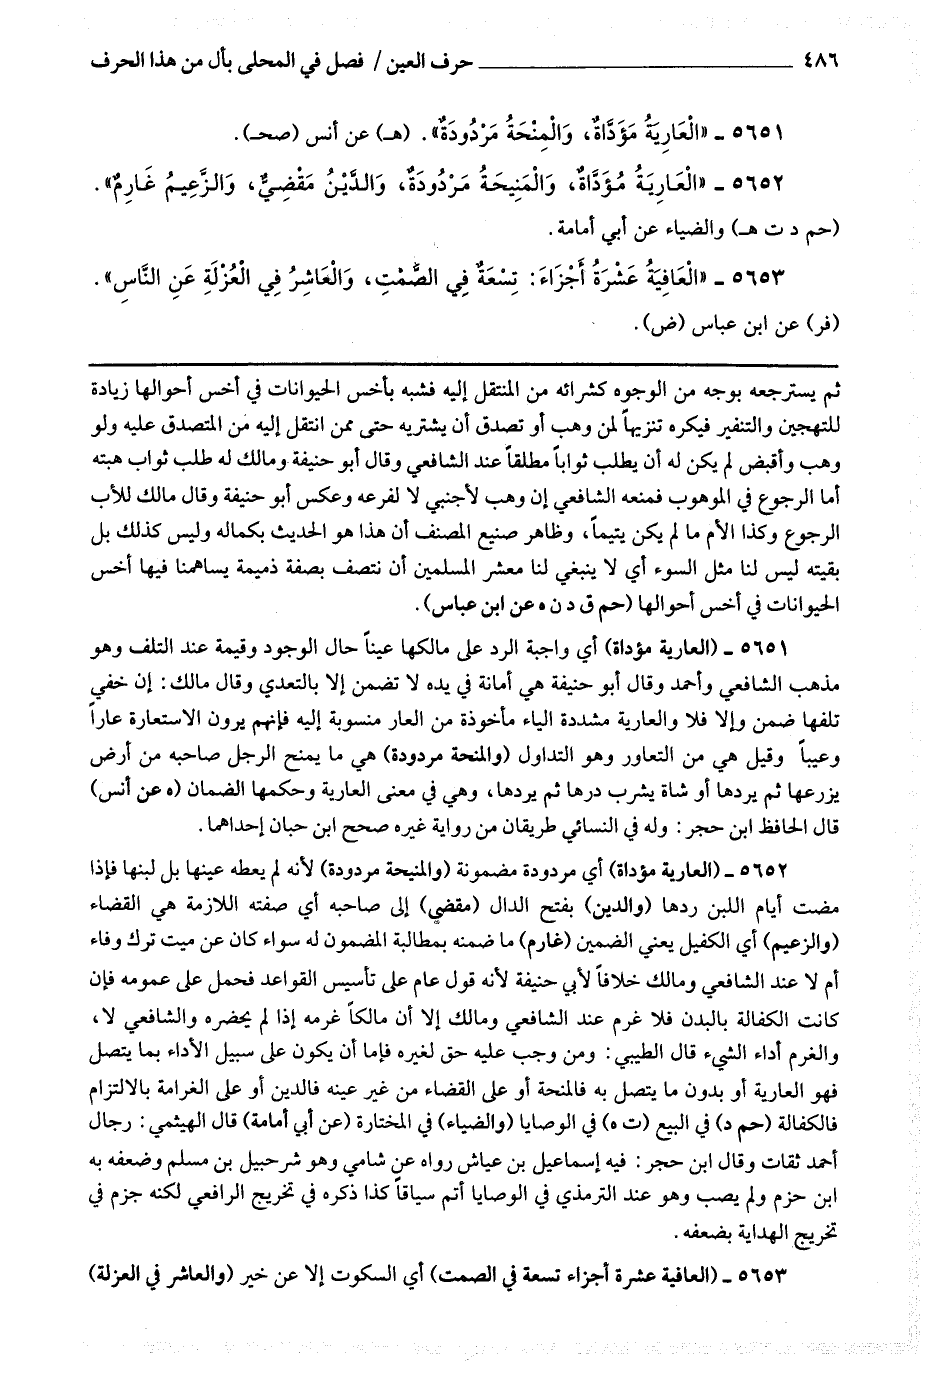 ٤٨٦ ـــــــــــــــــ حرف العين / فصل في المحلى بأل من هذا الحرف
٥٦٥١ ـ «الْعَارِيَةُ مَؤَدَّاةٌ، وَالْمِنْحَةُ مَرْدُودَةٌ». (هـ) عن أنس (صحـ).
٥٦٥٢ ـ «الْعَارِيَةُ مُؤَدَّاةٌ، وَالْمَنِيحَةُ مَرْدُودَةٌ، وَالدَّيْنُ مَقْضِيٌّ، وَالزَّعِيمُ غَارِمٌ».
(حم د ت هـ) والضياء عن أبي أمامة.
٥٦٥٣ ـ «الْعَافِيَةُ عَشْرَةُ أَجْزَاءَ: تِسْعَةٌ فِي الصَّمْتِ، وَالْعَاشِرُ فِي الْعُزْلَةِ عَنِ النَّاسِ».
(فر) عن ابن عباس (ض).
ثم يسترجعه بوجه من الوجوه كشرائه من المنتقل إليه فشبه بأخس الحيوانات في أخس أحوالها زيادة
للتهجين والتنفير فيكره تنزيهاً لمن وهب أو تصدق أن يشتريه حتى ممن انتقل إليه من المتصدق عليه ولو
وهب وأقبض لم يكن له أن يطلب ثواباً مطلقاً عند الشافعي وقال أبو حنيفة ومالك له طلب ثواب هبته
أما الرجوع في الموهوب فمنعه الشافعي إن وهب لأجنبي لا لفرعه وعكس أبو حنيفة وقال مالك للأب
الرجوع وكذا الأم ما لم يكن يتيماً، وظاهر صنيع المصنف أن هذا هو الحديث بكماله وليس كذلك بل
بقيته ليس لنا مثل السوء أي لا ينبغي لنا معشر المسلمين أن نتصف بصفة ذميمة يساهمنا فيها أخس
الحيوانات في أخس أحوالها (حم ق د ن ه عن ابن عباس).
٥٦٥١ ـ (العارية مؤداة) أي واجبة الرد على مالكها عيناً حال الوجود وقيمة عند التلف وهو
مذهب الشافعي وأحمد وقال أبو حنيفة هي أمانة في يده لا تضمن إلا بالتعدي وقال مالك: إن خفي
تلفها ضمن وإلا فلا والعارية مشددة الياء مأخوذة من العار منسوبة إليه فإنهم يرون الاستعارة عاراً
وعيباً وقيل هي من التعاور وهو التداول (والمنحة مردودة) هي ما يمنح الرجل صاحبه من أرض
يزرعها ثم يردها أو شاة يشرب درها ثم يردها، وهي في معنى العارية وحكمها الضمان (ه عن أنس)
قال الحافظ ابن حجر: وله في النسائي طريقان من رواية غيره صحح ابن حبان إحداهما.
٥٦٥٢ ـ (العارية مؤداة) أي مردودة مضمونة (والمنيحة مردودة) لأنه لم يعطه عينها بل لبنها فإذا
مضت أيام اللبن ردها (والدين) بفتح الدال (مقضي) إلى صاحبه أي صفته اللازمة هي القضاء
(والزعيم) أي الكفيل يعني الضمين (غارم) ما ضمنه بمطالبة المضمون له سواء كان عن ميت ترك وفاء
أم لا عند الشافعي ومالك خلافاً لأبي حنيفة لأنه قول عام على تأسيس القواعد فحمل على عمومه فإن
كانت الكفالة بالبدن فلا غرم عند الشافعي ومالك إلا أن مالكاً غرمه إذا لم يحضره والشافعي لا،
والغرم أداء الشيء قال الطيبي: ومن وجب عليه حق لغيره فإما أن يكون على سبيل الأداء بما يتصل
فهو العارية أو بدون ما يتصل به فالمنحة أو على القضاء من غير عينه فالدين أو على الغرامة بالالتزام
فالكفالة (حم د) في البيع (ت ه) في الوصايا (والضياء) في المختارة (عن أبي أمامة) قال الهيثمي: رجال
أحمد ثقات وقال ابن حجر: فيه إسماعيل بن عياش رواه عن شامي وهو شرحبيل بن مسلم وضعفه به
ابن حزم ولم يصب وهو عند الترمذي في الوصايا أتم سياقاً كذا ذكره في تخريج الرافعي لكنه جزم في
تخريج الهداية بضعفه.
٥٦٥٣ ـ (العافية عشرة أجزاء تسعة في الصمت) أي السكوت إلا عن خير (والعاشر في العزلة)